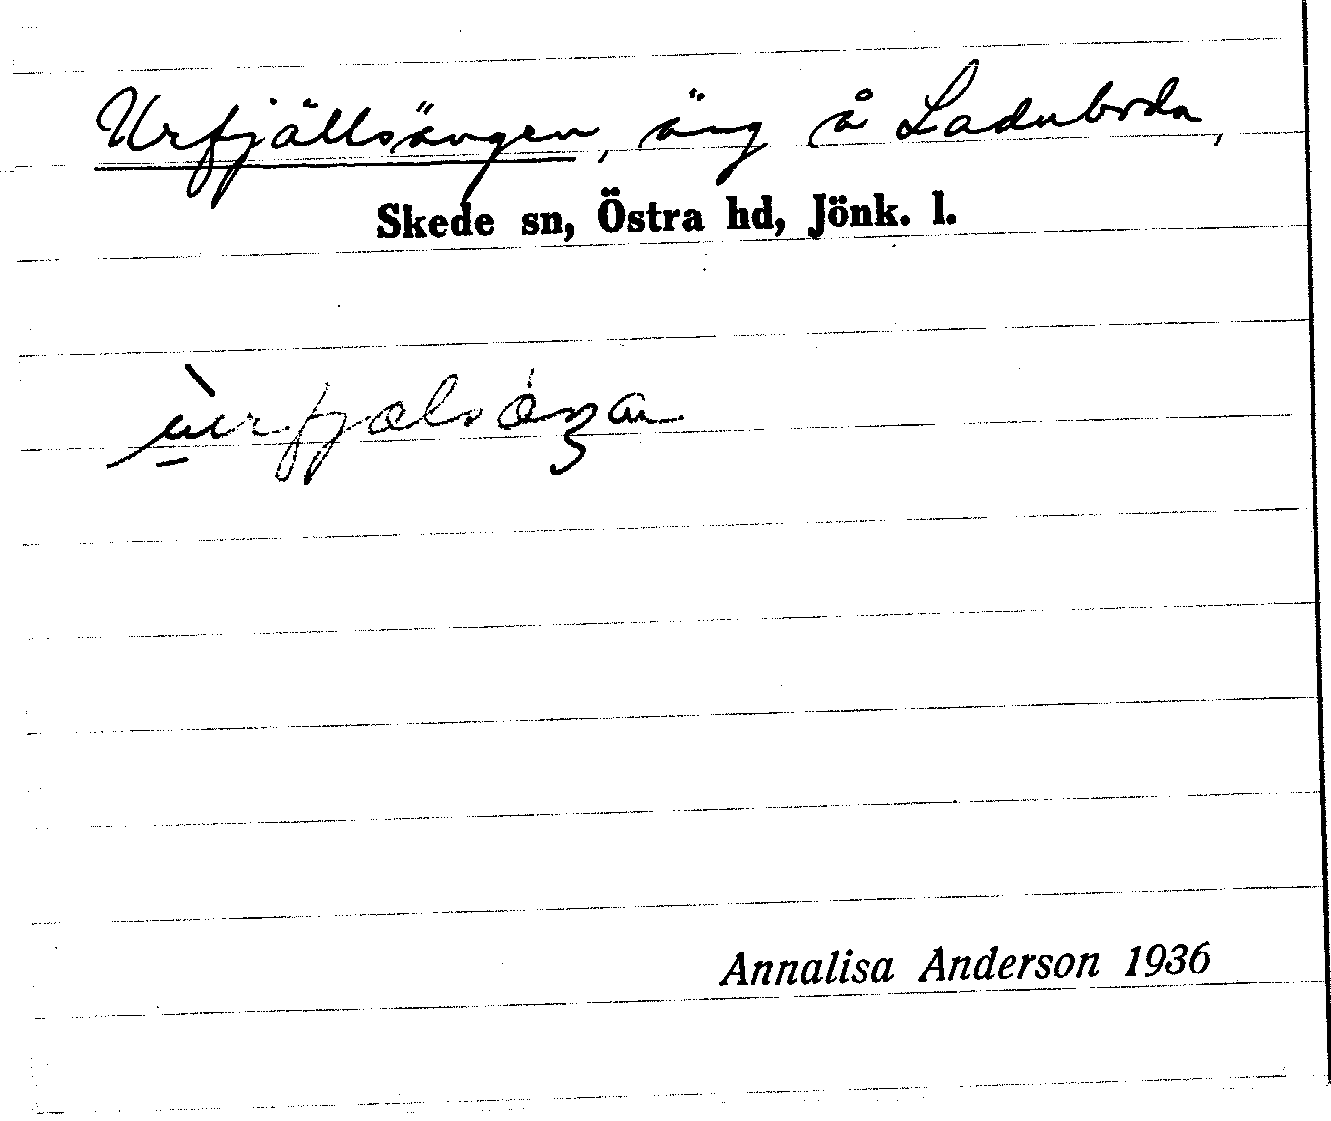 Urfjällsängen, äng å Laduborda,
Skede sn, Östra hd, Jönk. l.
Annalisa Anderson 1936